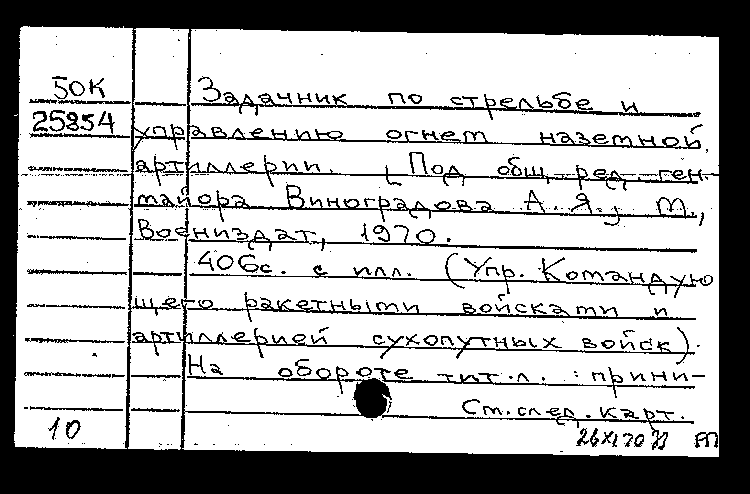 50К
25854
Задачник по стрельбе и
управлению огнем наземной
артиллерии. [Под общ. ред. ген.-
майора Виноградова А. Я.] М.,
Воениздат, 1970.
406с. с илл. (Упр. Командую
щего ракетными войсками и
артиллерией сухопутных войск).
На обороте тит.л.: прини-
См. след. карт.
10
26XI70